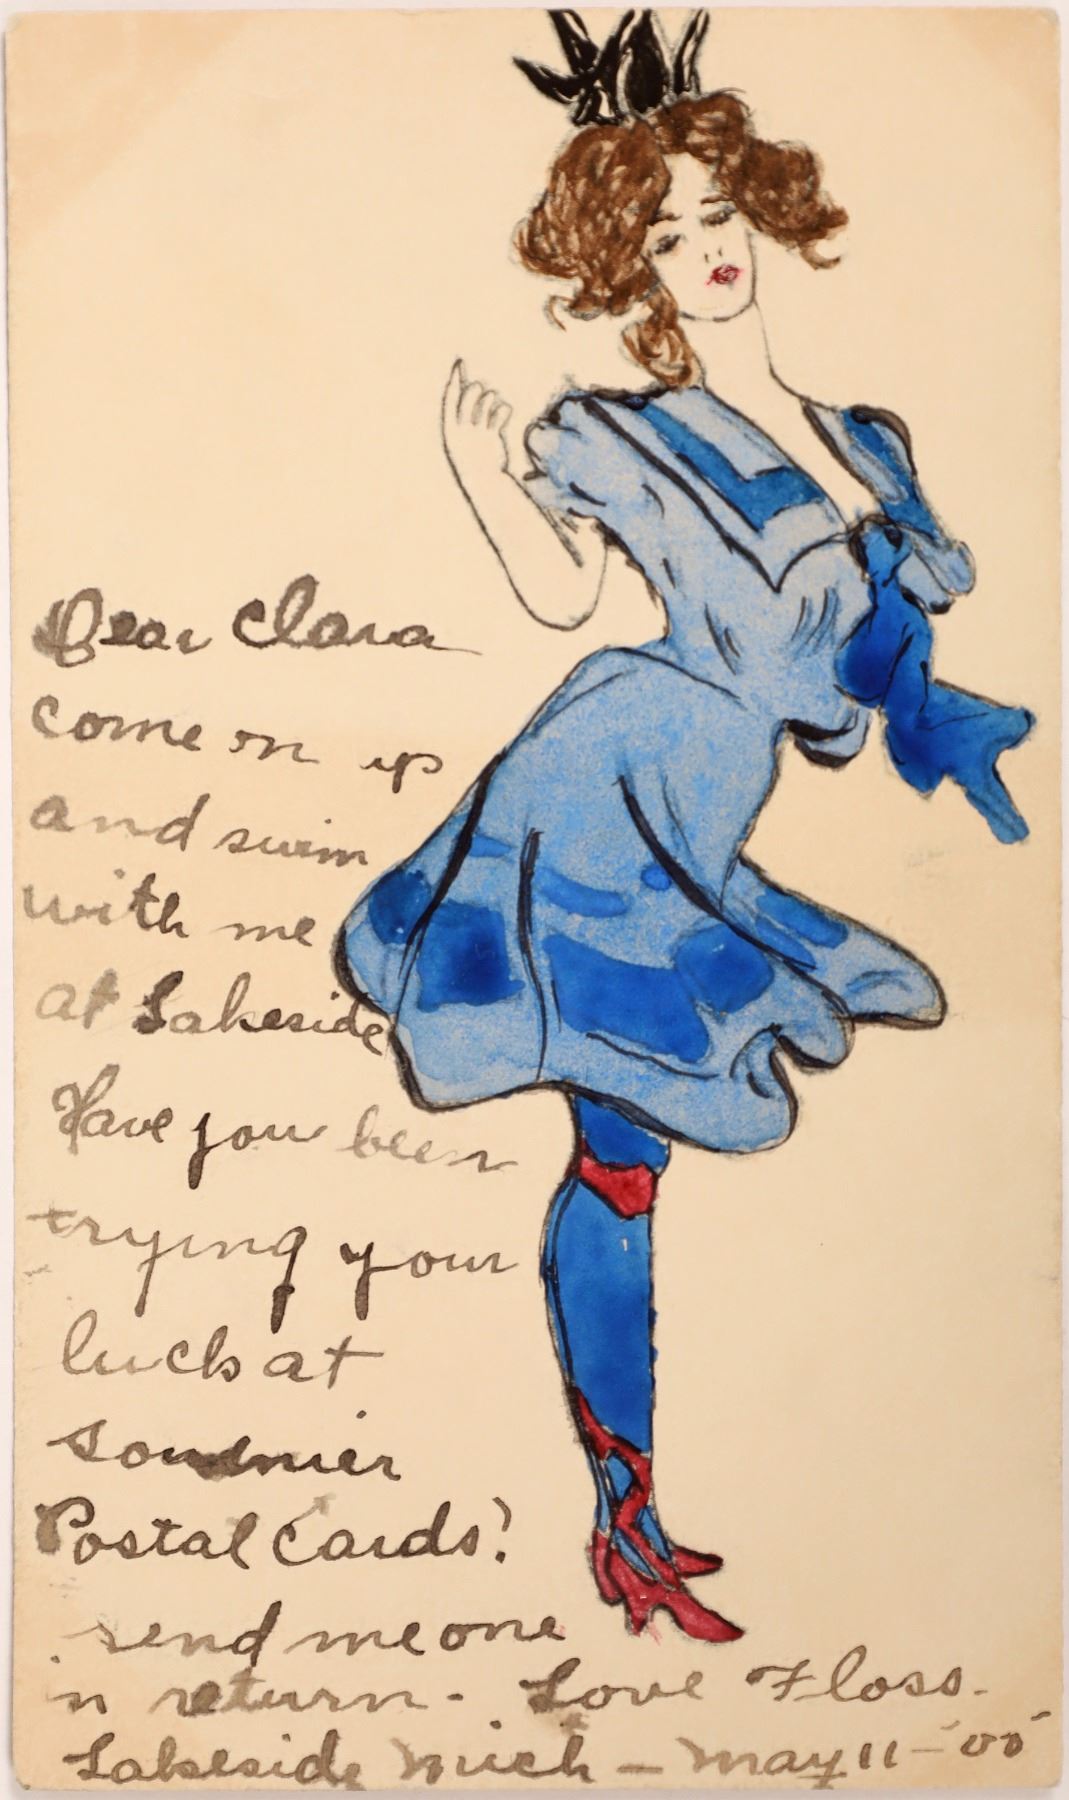 Dear Clara
come on up
and swim
with me
at Lakeside
Have you been
trying your
luck at
souvenier
Postal Cards?
send me one
in return. Love Floss.
Lakeside Mich - May 11 - '00